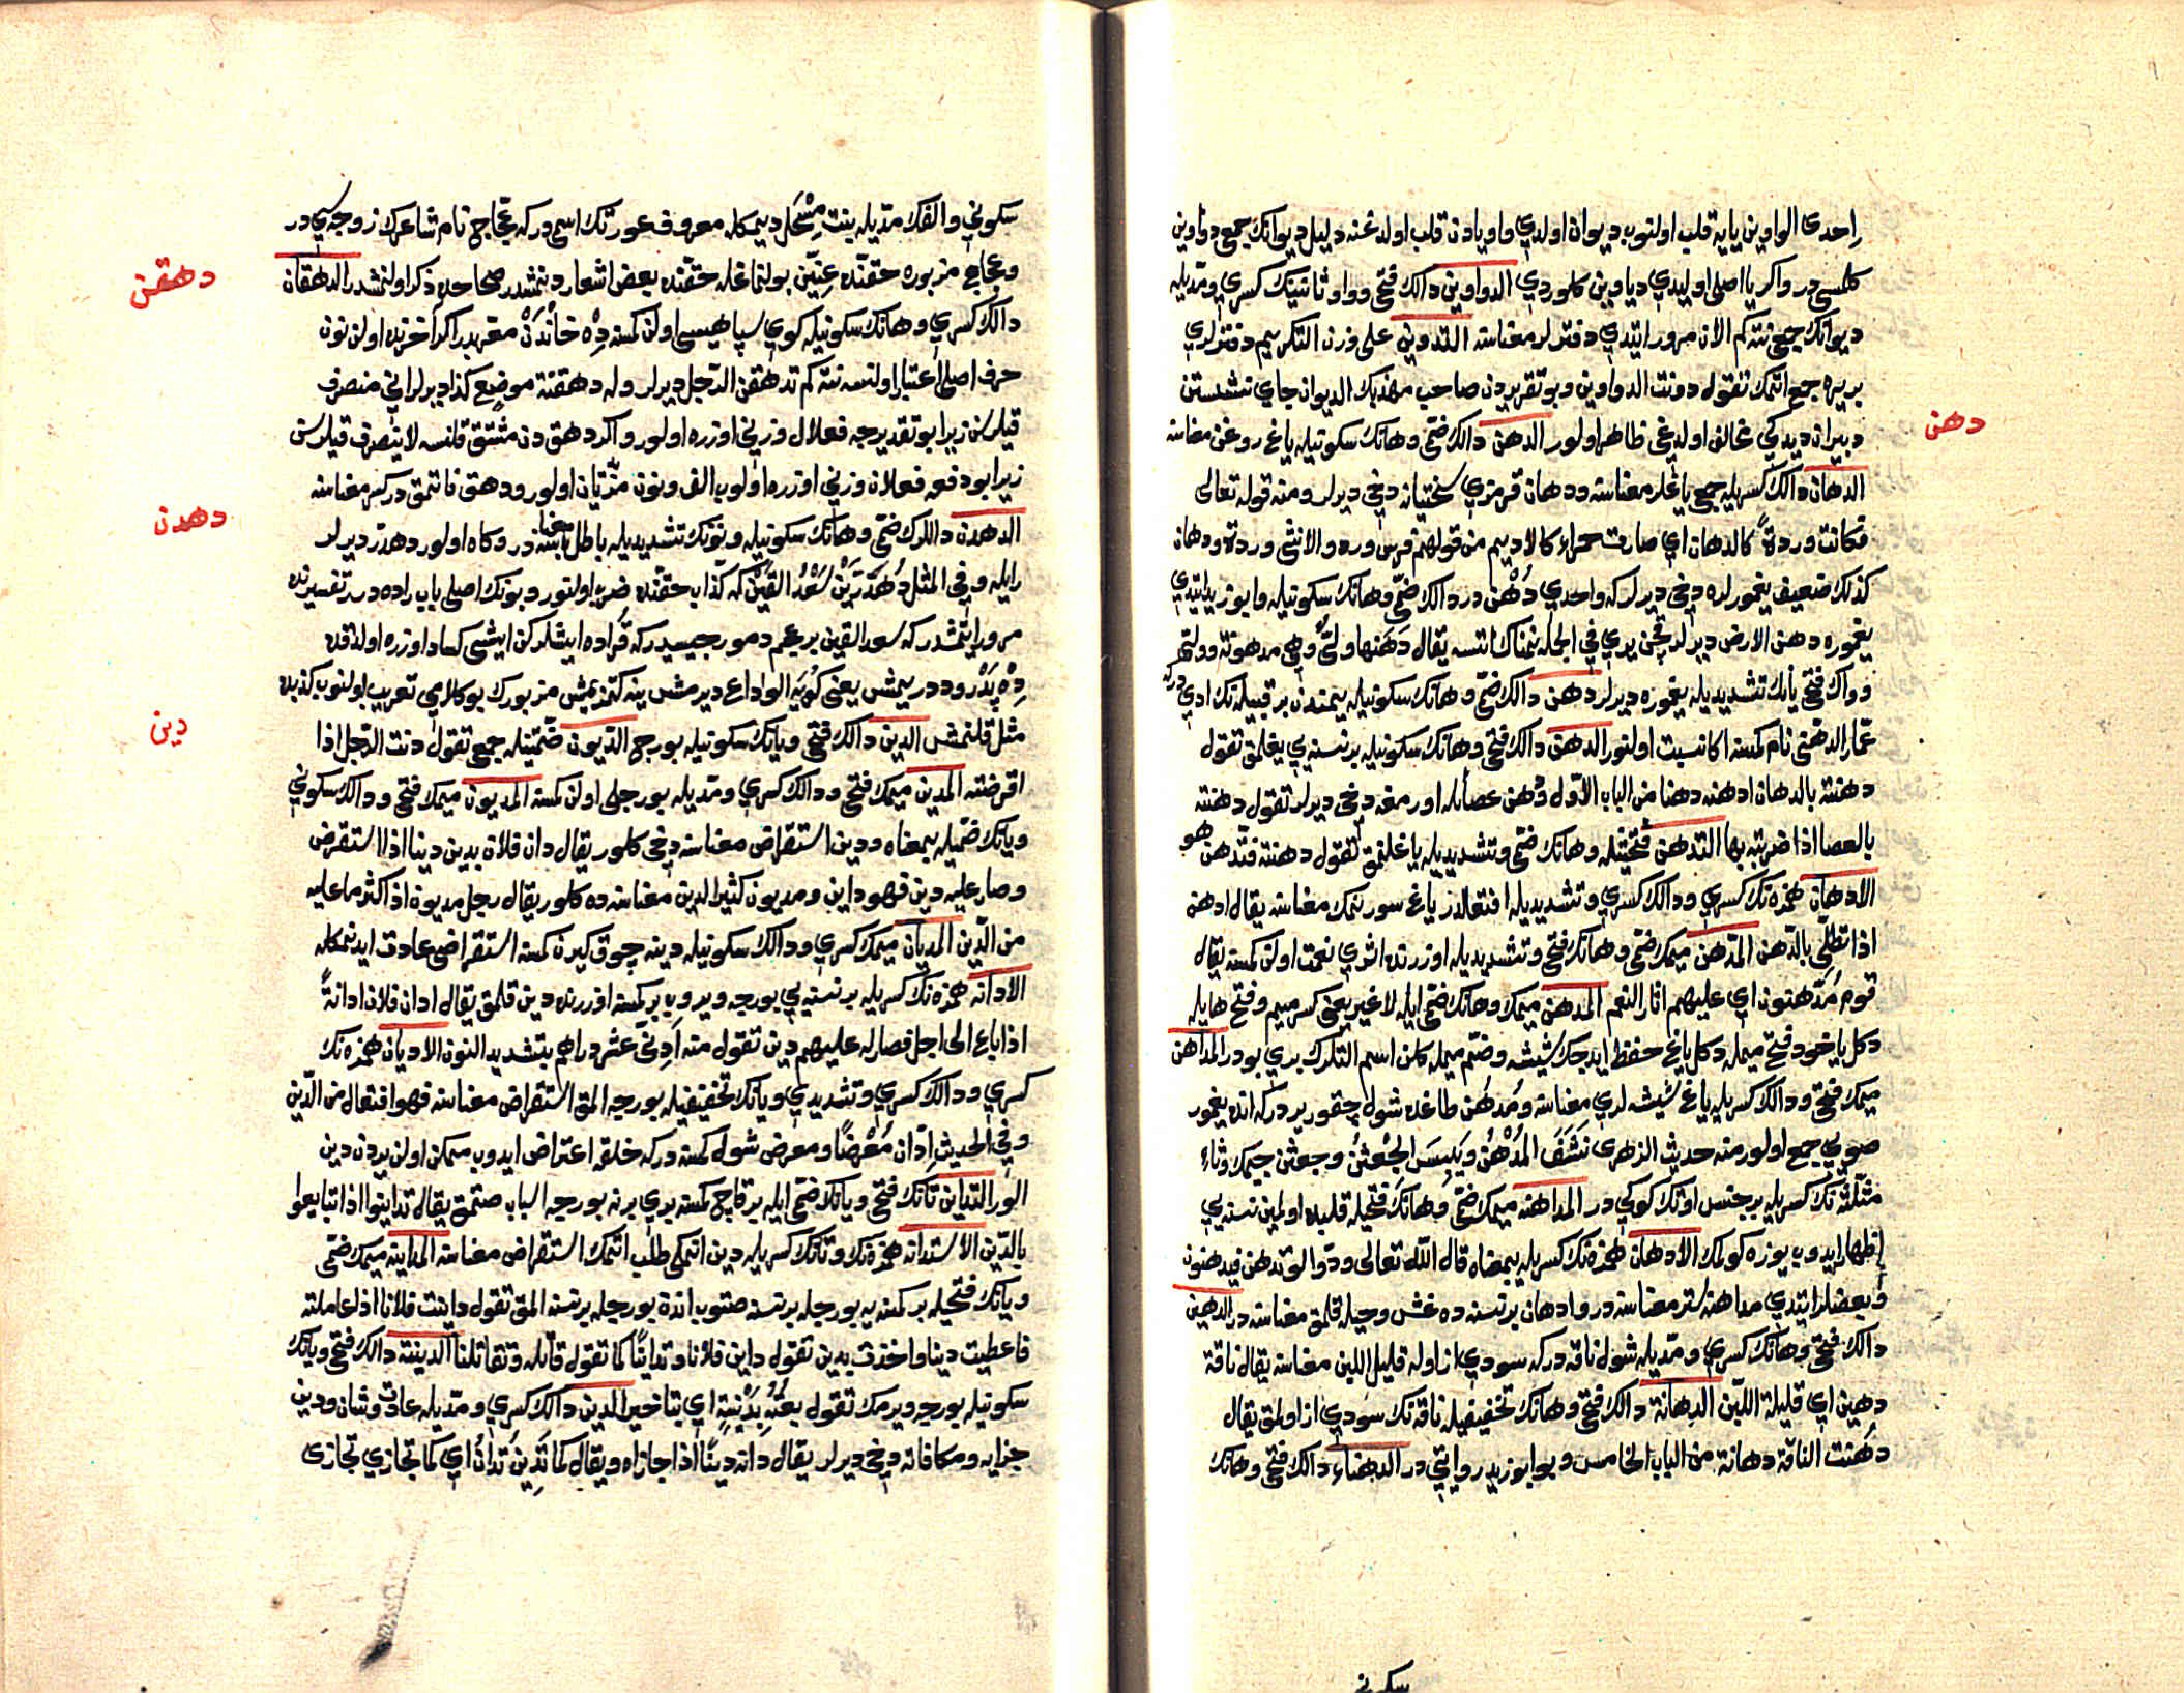 اِحدى الواوين يايه قلب اولنوب ديوان اولدي واو يادن قلب اولدغنه دليل ديوانك جمع دواوين
كلمسي در واكر يا اصلي اوليدي دياوين كلوردي الدواوين دالك فتحي وواو ثانينك كسري ومدّيله
ديوانك جمعي نته كم الان مرور ايتدي دفتر لر معناسنه التدوين على وزن التكريم دفتر لري
بر يره جمع اتمك تقول دونت الدواوين وبو تقريردن صاحب مهذبك الديوان جاي نشستن
دبيران ديدكي مخالف اولدغي ظاهر اولور الدهن دالك ضمّي وهانك سكونيله ياغ روغن معناسنه
دهن
الدهان دالك كسريله جمعي ياغلر معناسنه ودهان قرمزي سختيانه دخي ديرلر ومنه قوله تعالى
فكانت وردةً كالدهان اي صارت حمراء كالاديم من قولهم فرس ورد والانثى وردة ودهان
كذلك ضعيف يغمورلره دخي ديرلر كه واحدي دُهْن در دالك ضمّي وهانك سكونيله وابو زيد ايتدي
يغموره دهن الارض ديرلر قچن يري في الجمله نمناك اتسه يقال دَهَنها ولىٌّ وهي مدهونة وولي
وواك فتحي يانك تشديديله يغموره ديرلر دهن دالك ضمّي وهانك سكونيله يمندن بر قبيله نك اديدركه
عمار الدهني نام كمسنه اكا نسبت اولنور الدهن دالك فتحي وهانك سكونيله بر نسنه يي يغلمق تقول
دهنته بالدهان ادهنه دهنا من الباب الاوّل ودهن عصا ايله اورمغه دخي ديرلر تقول دهنته
بالعصا اذا ضربته بها التدهن فتحتيله وهانك ضمّي وتشديديله ياغلنمق تقول دهنته فتدهن هو
الادهان همزه نك كسري ودالك كسري وتشديديله افتعالدر ياغ سورنمك معناسنه يقال ادهن
اذا تطلّى بالدّهن المدّهن ميمك ضمّي وهانك فتحي وتشديديله اوزرنده اثري نعمت اولن كمسنه يقال
قوم مُدّهنون اي عليهم اثار النعم المدهن ميمك وهانك ضمّي ايله لا غير يعني كسر ميم وفتح هايله
دكل ياخود فتح ميمله دكل ياغ حفظ ايدجك شيشه وضمّ ميمله كلن اسم التلرك بري بودر المداهن
ميمك فتحي ودالك كسريله ياغ شيشه لري معناسنه ومُدهُن طاغده شول چقور يردركه انده يغمور
صويي جمع اولور ومنه حديث الزهري نَشَفَ المُدْهُنُ ويَبِسَ الجِعْثِنُ وجعثن جيمك وثاء
مثلّثه نك كسريله بر جنس اوتك كوكي در المداهنه ميمك ضمّي وهانك فتحيله قلبده اولمين نسنه يي
اظهار ايدوب يوزه كولمك الادهان همزه نك كسريله بمعناه قال الله تعالى ودّوا لو تدهن فيدهنون
وبعضلر ايتدي مداهنه ستر معناسنه در وادهان بر نسنه ده غش وحيله قلمق معناسنه در الدهين
دالك فتحي وهانك كسري ومدّيله شول ناقه دركه سودي از اوله قليل اللبن معناسنه يقال ناقة
دهين اي قليلة اللبن الدهانة دالك فتحي وهانك تخفيفيله ناقه نك سودي از اولمق يقال
دهنت الناقة دهانة من الباب الخامس وبو ابو زيد روايتي در الدهناء دالك فتحي وهانك
سكوني
سكوني والفك مدّيله بنت مِسْحَل ديمكله معروف عورتك اسمدر كه عجّاج نام شاعرك زوجه سي در
وعجاج مزبوره حقّنده عنّين بولنماغله حقّنده بعض اشعار ديمشدر صحاحده ذكر اولنمشدر الدهقان
دهقن
دالك كسري وهانك سكونيله كوي سپاهيسي اولن كمسنه دِه خَانْدَنْ معرّبدر اكر اخرنده اولن نون
حرف اصلي اعتبار اولنسه نته كم تدهقن الرّجل ديرلر وله دهقنة موضع كذا ديرلر اني منصرف
قيلرسن زيرا بو تقديرجه فعلال وزني اوزره اولور واكر دهق دن مشتق قلنسه لاينصرف قيلرسن
زيرا بو دفعه فعلان وزني اوزره اولوب الف ونون مزيدتان اولور ودهق قاتمق در كبس معناسنه
الدهدن دالرك ضمّي وهانك سكونيله ونونك تشديديله باطل معناسنه در وكاه اولور دهدرّ ديرلر
دهدن
رايله وفي المثل دُهْدُرَّيْن سَعْدُ القَيْن كه كذّاب حقّنده ضرب اولنور وبونك اصلي باب راده در تفسيرنده
مرور ايتمشدر كه سعد القين بر عجم دمورجيسيدركه قُراده ايشلركن ايشي كساد اوزره اولدقده
دِهْ بَدْرود در يمش يعني كويه الوداع ديرمش ينه كتمزيمش مزبورك بو كلامي تعريب اولنوب كذبده
مثل قلنمش الدين دالك فتحي ويانك سكونيله بورج الديون ضمّتيله جمعي تقول دنت الرّجل اذا
دين
اقرضته المدين ميمك فتحي ودالك كسري ومدّيله بورجلي اولن كمسنه المديون ميمك فتحي ودالك سكوني
ويانك ضمّيله بمعناه ودين استقراض معناسنه دخي كلور يقال دان فلان يدين دينا اذا استقرض
وصار عليه دين فهو داين ومديون كثير الدين معناسنه ده كلور يقال رجل مديون اذا كثر ما عليه
من الدّين المديان ميمك كسري ودالك سكونيله دينه چوق كيرن كمسنه استقراضي عادت ايدنمكله
الادانه همزه نك كسريله بر نسنه يي بورجه ويروب بر كمسنه اوزرنده دين قلمق يقال ادان فلان ادانةً
اذا باع الى اجل فصار له عليهم دين تقول منه اَدِنّي عشر دراهم بتشديد النون الاديان همزه نك
كسري ودالك كسري وتشديدي ويانك تخفيفيله بورجه المق استقراض معناسنه فهو افتعال من الدّين
وفي الحديث اِدّان مُعْرِضًا ومعرض شول كمسنه دركه خلقه اعتراض ايدوب ممكن اولن يردن دين
الور التداين تانك فتحي ويانك ضمّي ايله بر قاچ كمسنه بري برنه بورجه الب صتمق يقال تداينوا اذا تبايعوا
بالدّين الاستدانه همزه نك وتانك كسريله دين اتمكي طلب اتمك استقراض معناسنه المداينه ميمك ضمّي
ويانك فتحيله بر كمسنه يه بورجله بر نسنه صتوب اندن بورجله بر نسنه المق تقول داينت فلانا اذا عاملته
فاعطيت دينا واخذت بدين تقول داين فلانا وتداينّا كما تقول قاتله وتقاتلنا الدينة دالك فتحي ويانك
سكونيله بورجه ويرمك تقول بعته بدَيْنة اي بتاخير الدين دالك كسري ومدّيله عادت وشان ودين
جزايه ومكافاته دخي ديرلر يقال دانه دِينًا اذا جازاه ويقال كما تَدِينُ تُدانُ اي كما تجازي تجازى